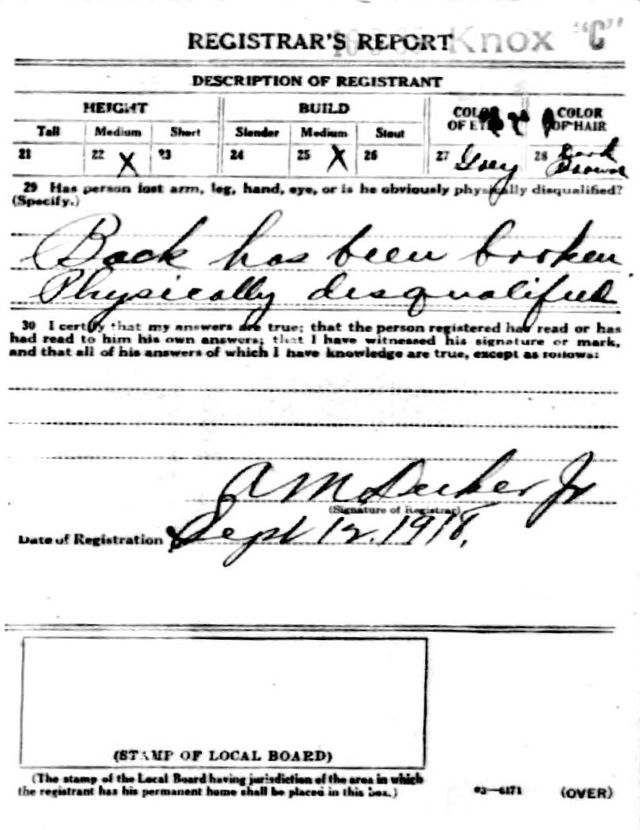 REGISTRAR'S REPORT Knox "C"
DESCRIPTION OF REGISTRANT
HEIGHT BUILD COLOR OF EYES COLOR OF HAIR
Tall Medium Short Slender Medium Stout
21 22 X 23 24 25 X 26 27 Grey 28 Dark Brown
29 Has person lost arm, leg, hand, eye, or is he obviously physically disqualified?
(Specify.)
Back has been broken
Physically disqualified
30 I certify that my answers are true; that the person registered has read or has
had read to him his own answers; that I have witnessed his signature or mark,
and that all of his answers of which I have knowledge are true, except as follows:
A M Decker Jr
(Signature of Registrar)
Date of Registration Sept 12, 1918,
(STAMP OF LOCAL BOARD)
(The stamp of the Local Board having jurisdiction of the area in which
the registrant has his permanent home shall be placed in this box.)
03—6171 (OVER)